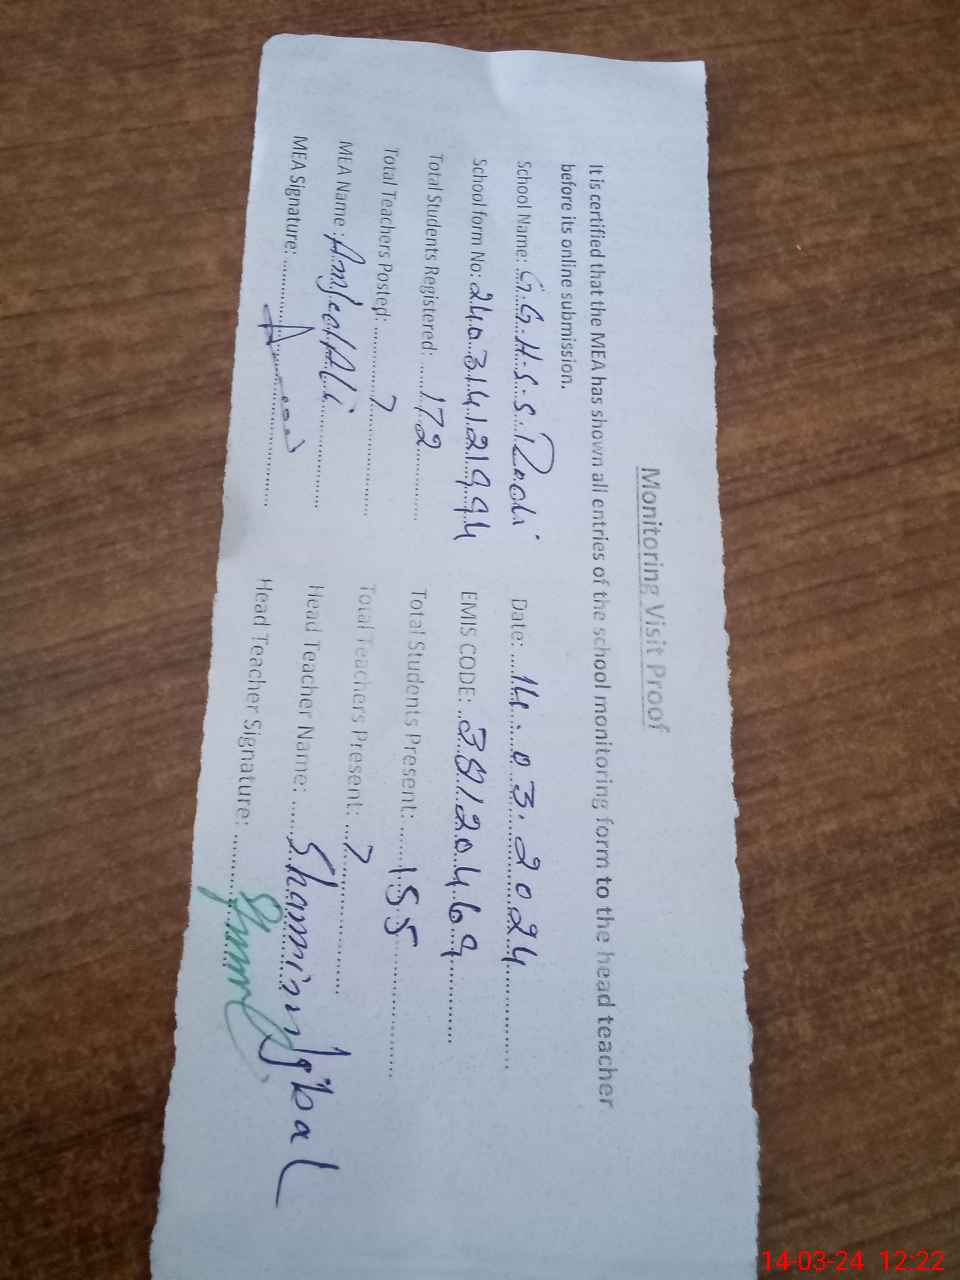 Monitoring Visit Proof
It is certified that the MEA has shown all entries of the school monitoring form to the head teacher
before its online submission.
School Name: G.G.H.S.S. Rodi Date: 14.03.2024
School form No: 240314121994 EMIS CODE: 38120469
Total Students Registered: 172 Total Students Present: 155
Total Teachers Posted: 7 Total Teachers Present: 7
MEA Name: Amjad Ali Head Teacher Name: Shamim Iqbal
MEA Signature: Head Teacher Signature:
14-03-24 12:22